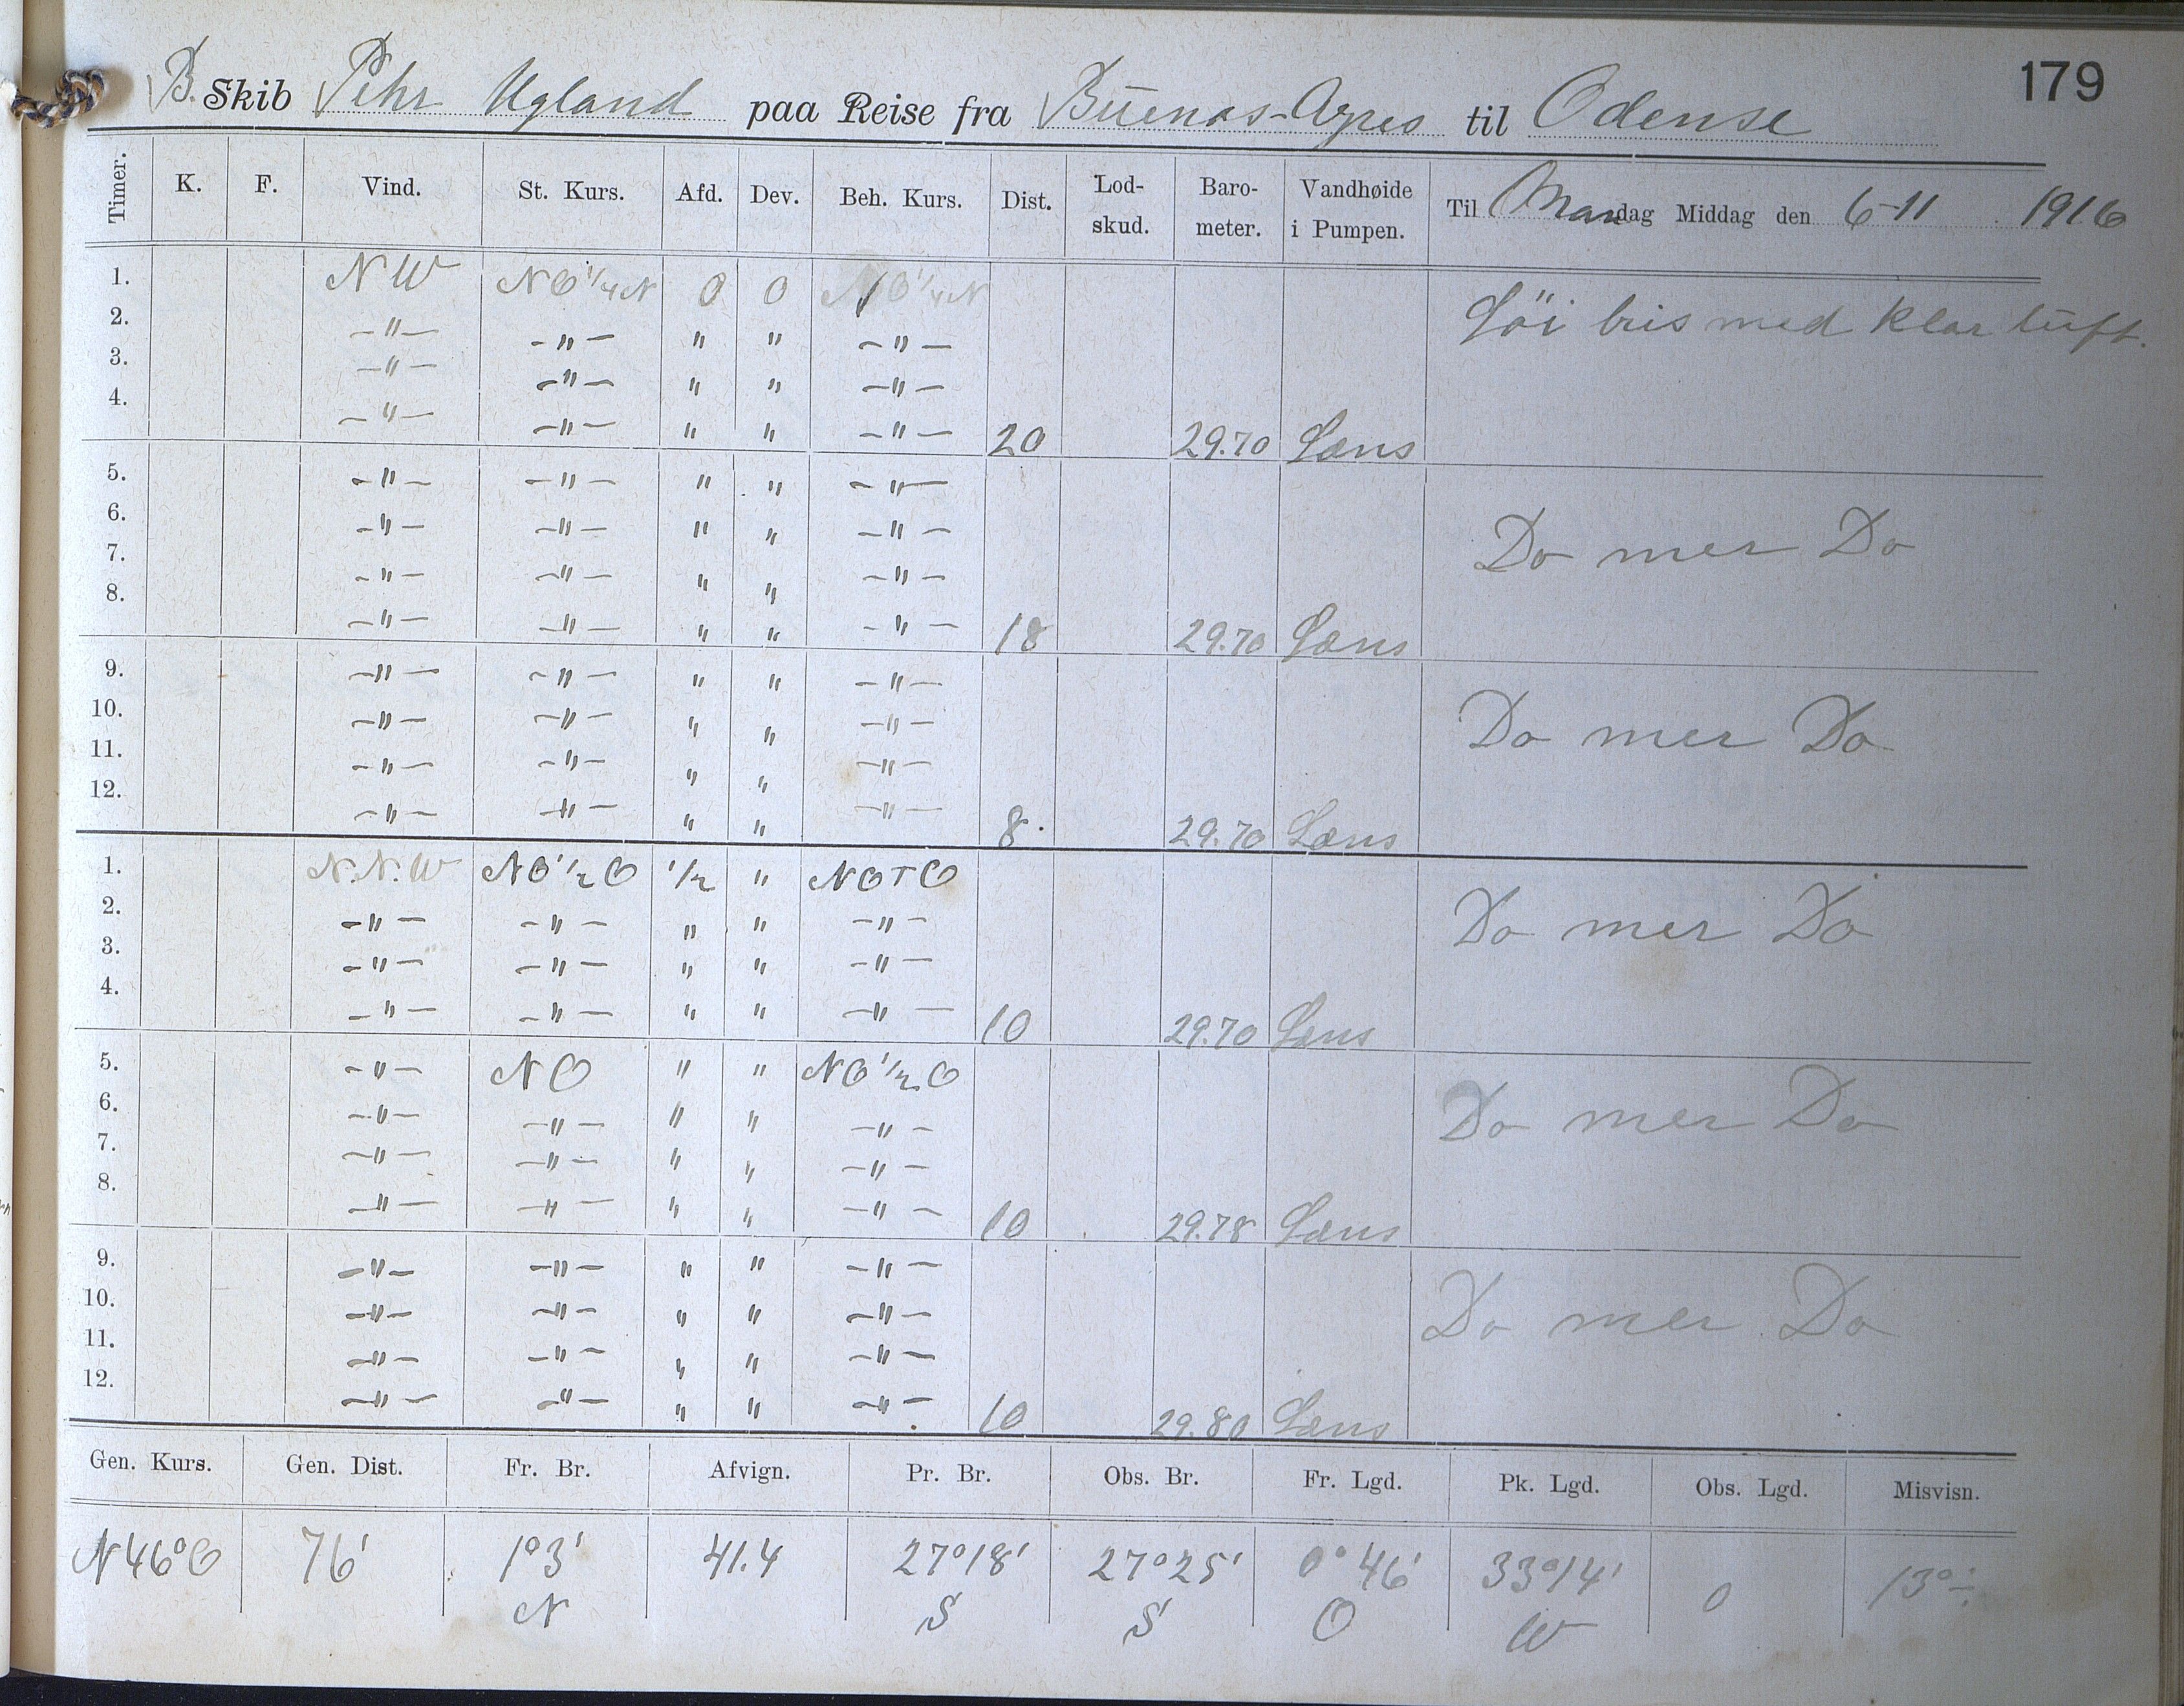 179
B. Skib Pehr Ugland paa Reise fra Buenos-Ayres til Odense
Timer. K. F. Vind. St. Kurs. Afd. Dev. Beh. Kurs. Dist. Lod-skud. Baro-meter. Vandhøide i Pumpen. Til Mandag Middag den 6-11 1916
1. NW NO 1/4 N 0 0 NO 1/4 N Löi bris med klar luft.
2. -"- -"- " " -"-
3. -"- -"- " " -"-
4. -"- -"- " " -"- 20 29.70 Læns
5. -"- -"- " " -"-
6. -"- -"- " " -"- Do mer Do
7. -"- -"- " " -"-
8. -"- -"- " " -"- 18 29.70 Læns
9. -"- -"- " " -"-
10. -"- -"- " " -"- Do mer Do
11. -"- -"- " " -"-
12. -"- -"- " " -"- 8 29.70 Læns
1. N.N.W NO 1/2 O 1/2 " NOTO
2. -"- -"- " " -"- Do mer Do
3. -"- -"- " " -"-
4. -"- -"- " " -"- 10 29.70 Læns
5. -"- NO " " NO 1/2 O
6. -"- -"- " " -"- Do mer Do
7. -"- -"- " " -"-
8. -"- -"- " " -"- 10 29.78 Læns
9. -"- -"- " " -"-
10. -"- -"- " " -"- Do mer Do
11. -"- -"- " " -"-
12. -"- -"- " " -"- 10 29.80 Læns
Gen. Kurs. Gen. Dist. Fr. Br. Afvign. Pr. Br. Obs. Br. Fr. Lgd. Pk. Lgd. Obs. Lgd. Misvisn.
N46°O 76' 1°3' 41.4 27°18' 27°25' 0°46' 33°14' 0 13°÷
N S S O W